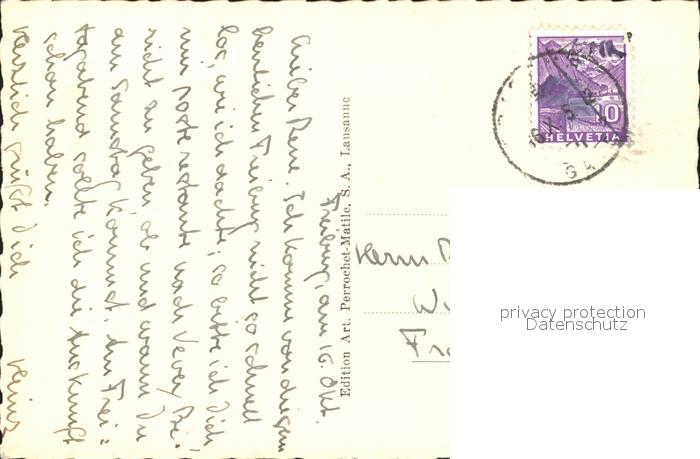 Freiburg, am 16. Okt.
Lieber Rene. Ich komme von diesem
herrlichen Freiburg nicht so schnell
los, wie ich dachte; so bitte ich Dich
mir poste restante nach Vevey
nicht zu geben, ob und wann Du
am Samstag kommst. Am Frei=
tagabend sollte ich die Auskunft
schon haben.
Herzlich grüßt Dich
Heinz
Edition Art. Perrochet-Matile, S. A., Lausanne
HELVETIA
10
Herrn
privacy protection
Datenschutz